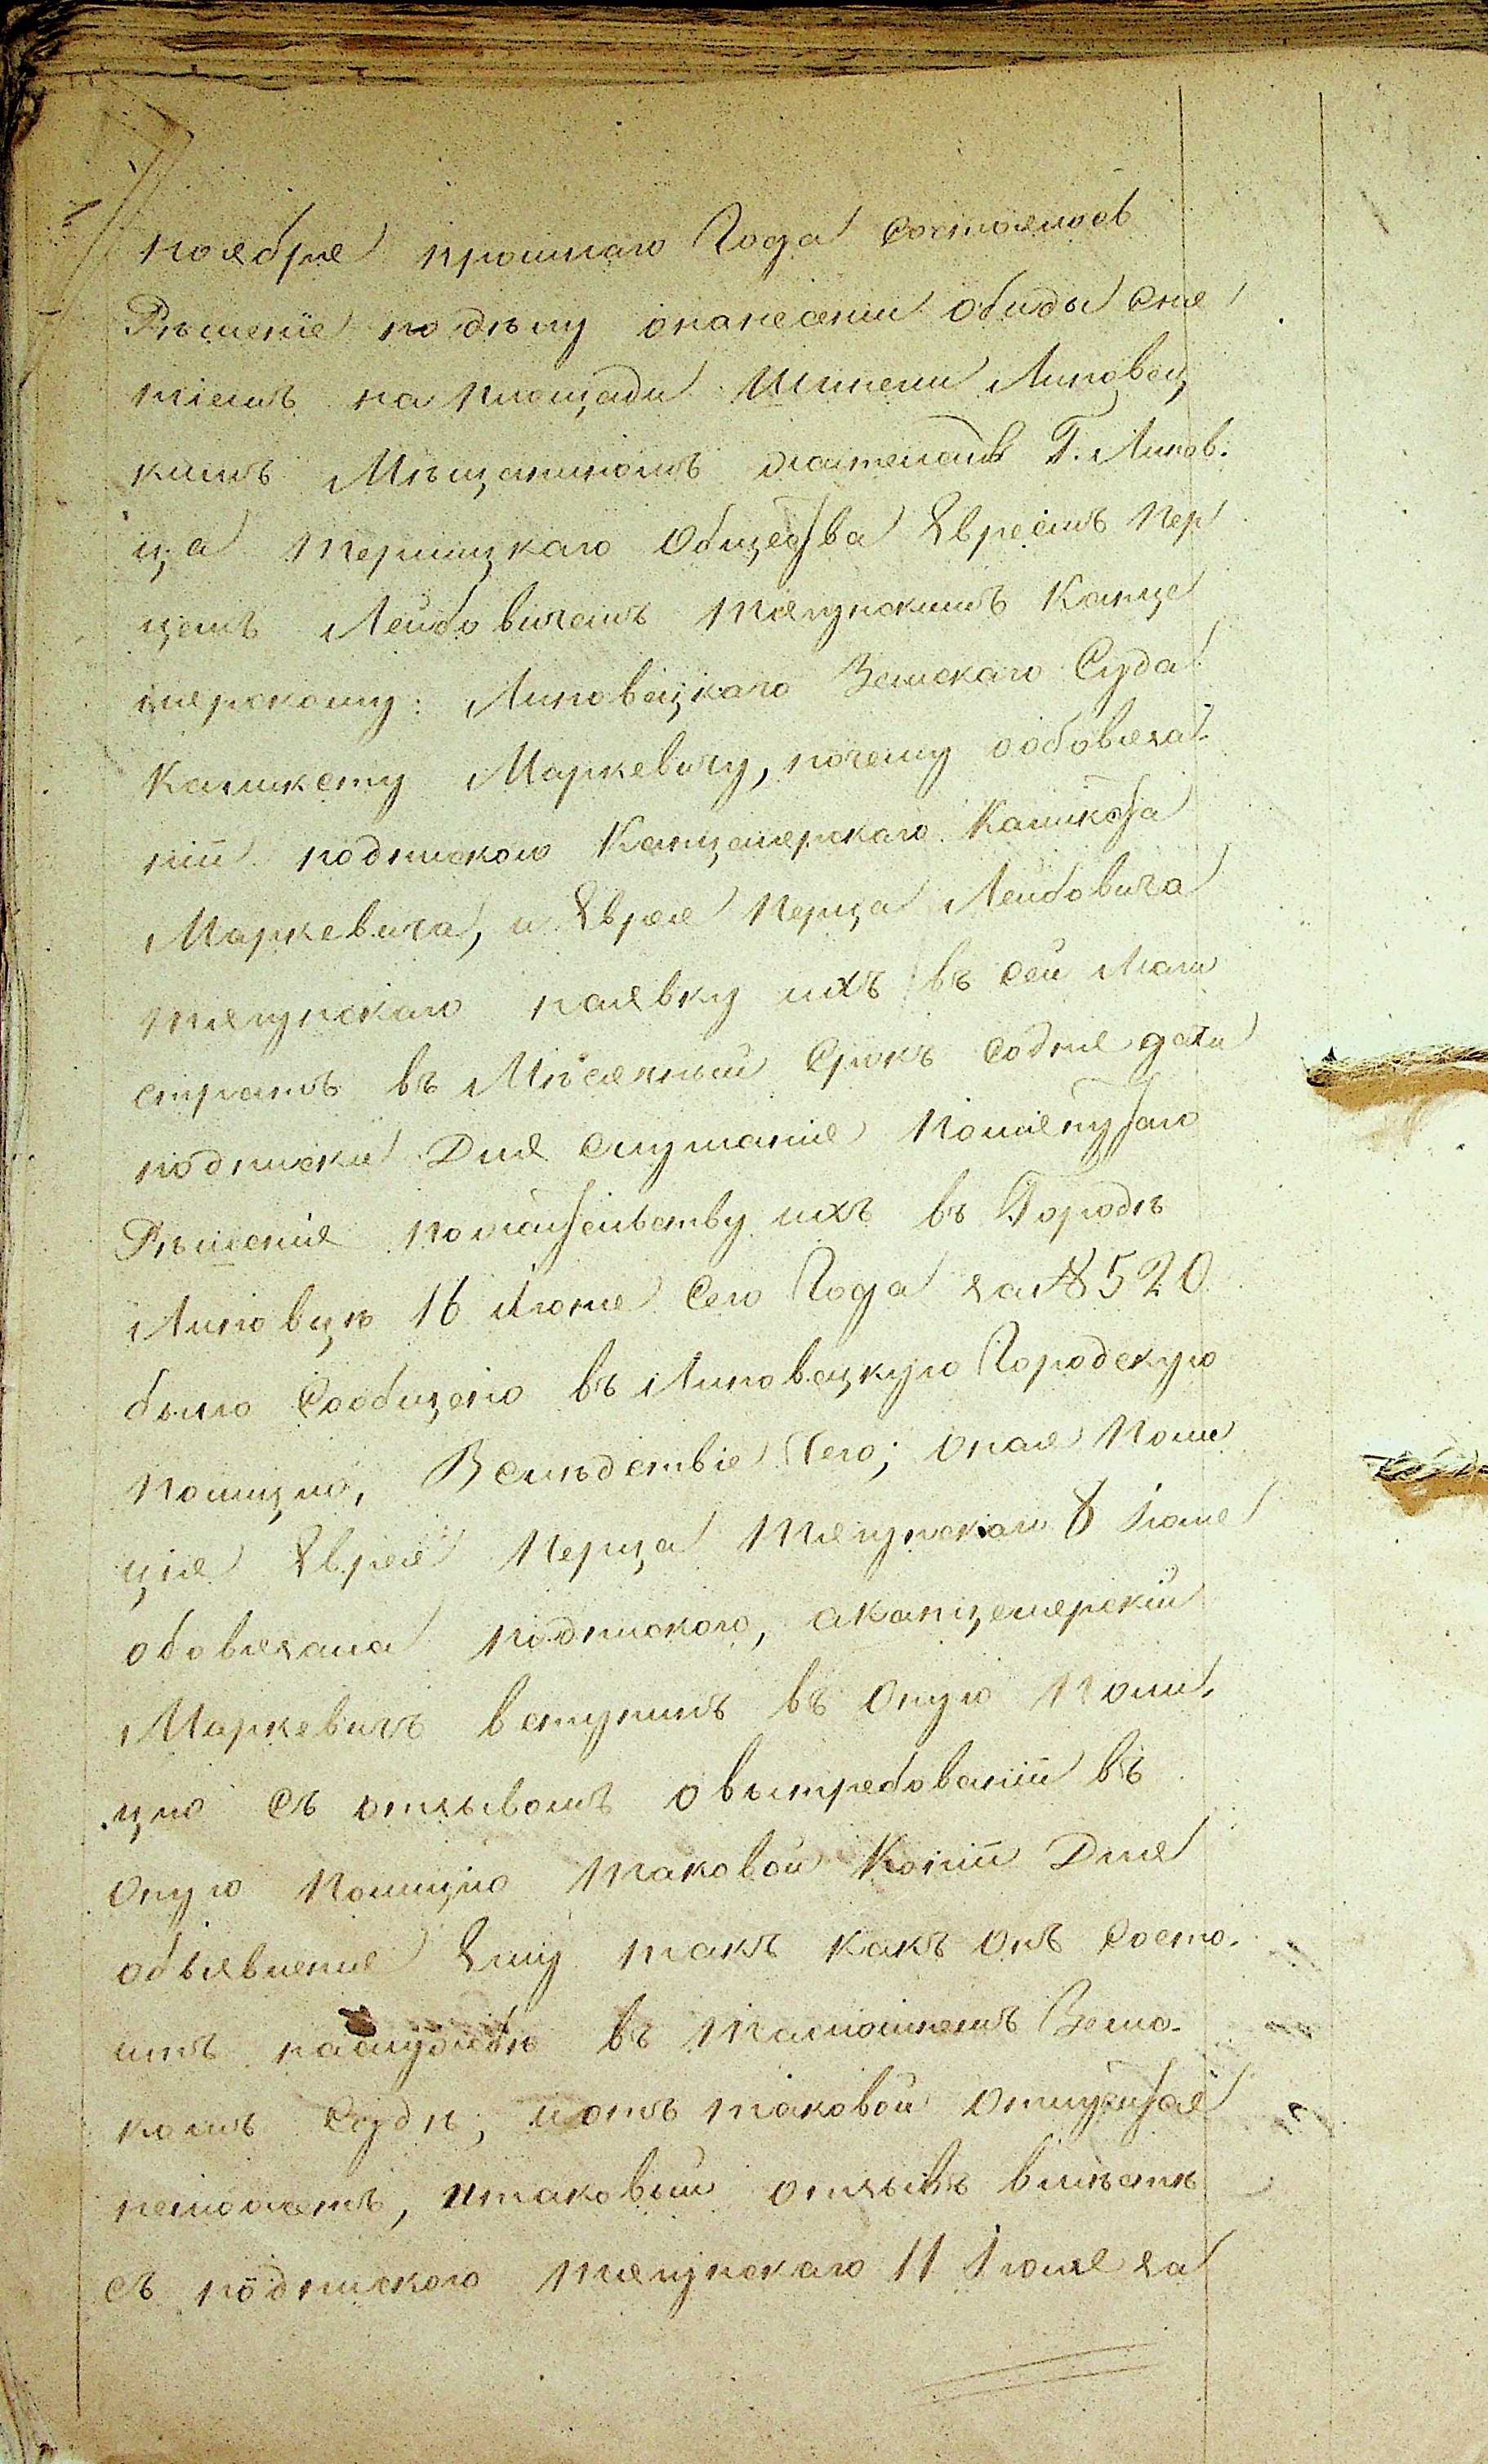 ноября прошлаго Года состоялось
Рѣшеніе по дѣлу онанесеніи обиды сня
тіемъ на площади Шинели Липовец
кимъ Мѣщаниномъ Г. Липов-
ца Терлицкаго Общества Евреемъ Пер
цемъ Лейбовичемъ Тягунскимъ Канце
лярскому: Липовецкаго Земскаго Суда
Каликсту Маркевичу, почему ообовяза-
ніи подпискою Канцелярскаго Каликста
Маркевича, и Еврея Перца Лейбовича
Тягунскаго наявку ихъ въ сей Маги
стратъ въ Мѣсячный Срокъ содня дачи
подписки Для слушанія Помянутаго
Рѣшенія пожительству ихъ въ Городѣ
Липовцѣ 16 Июня сего Года за № 520
было Сообщено въ Липовецкую Городскую
Полицію, Вслѣдствіе Чего; оная Поли
ція Еврея Перца Тягунскаго 8 Июля
обовязала подпискою, аканцелярскій
Маркевичъ вступилъ въ оную Поли-
цію съ отзывомъ овытребованіи въ
оную Полицію таковой Копіи Для
объявленія Ему такъ какъ онъ Состо-
итъ наслужбѣ въ тамошнемъ Земс-
комъ Судѣ, иотъ таковой отлучится
неможетъ, итаковый отзывъ вмѣстѣ
съ подпискою Тягунскаго 11 Июля за